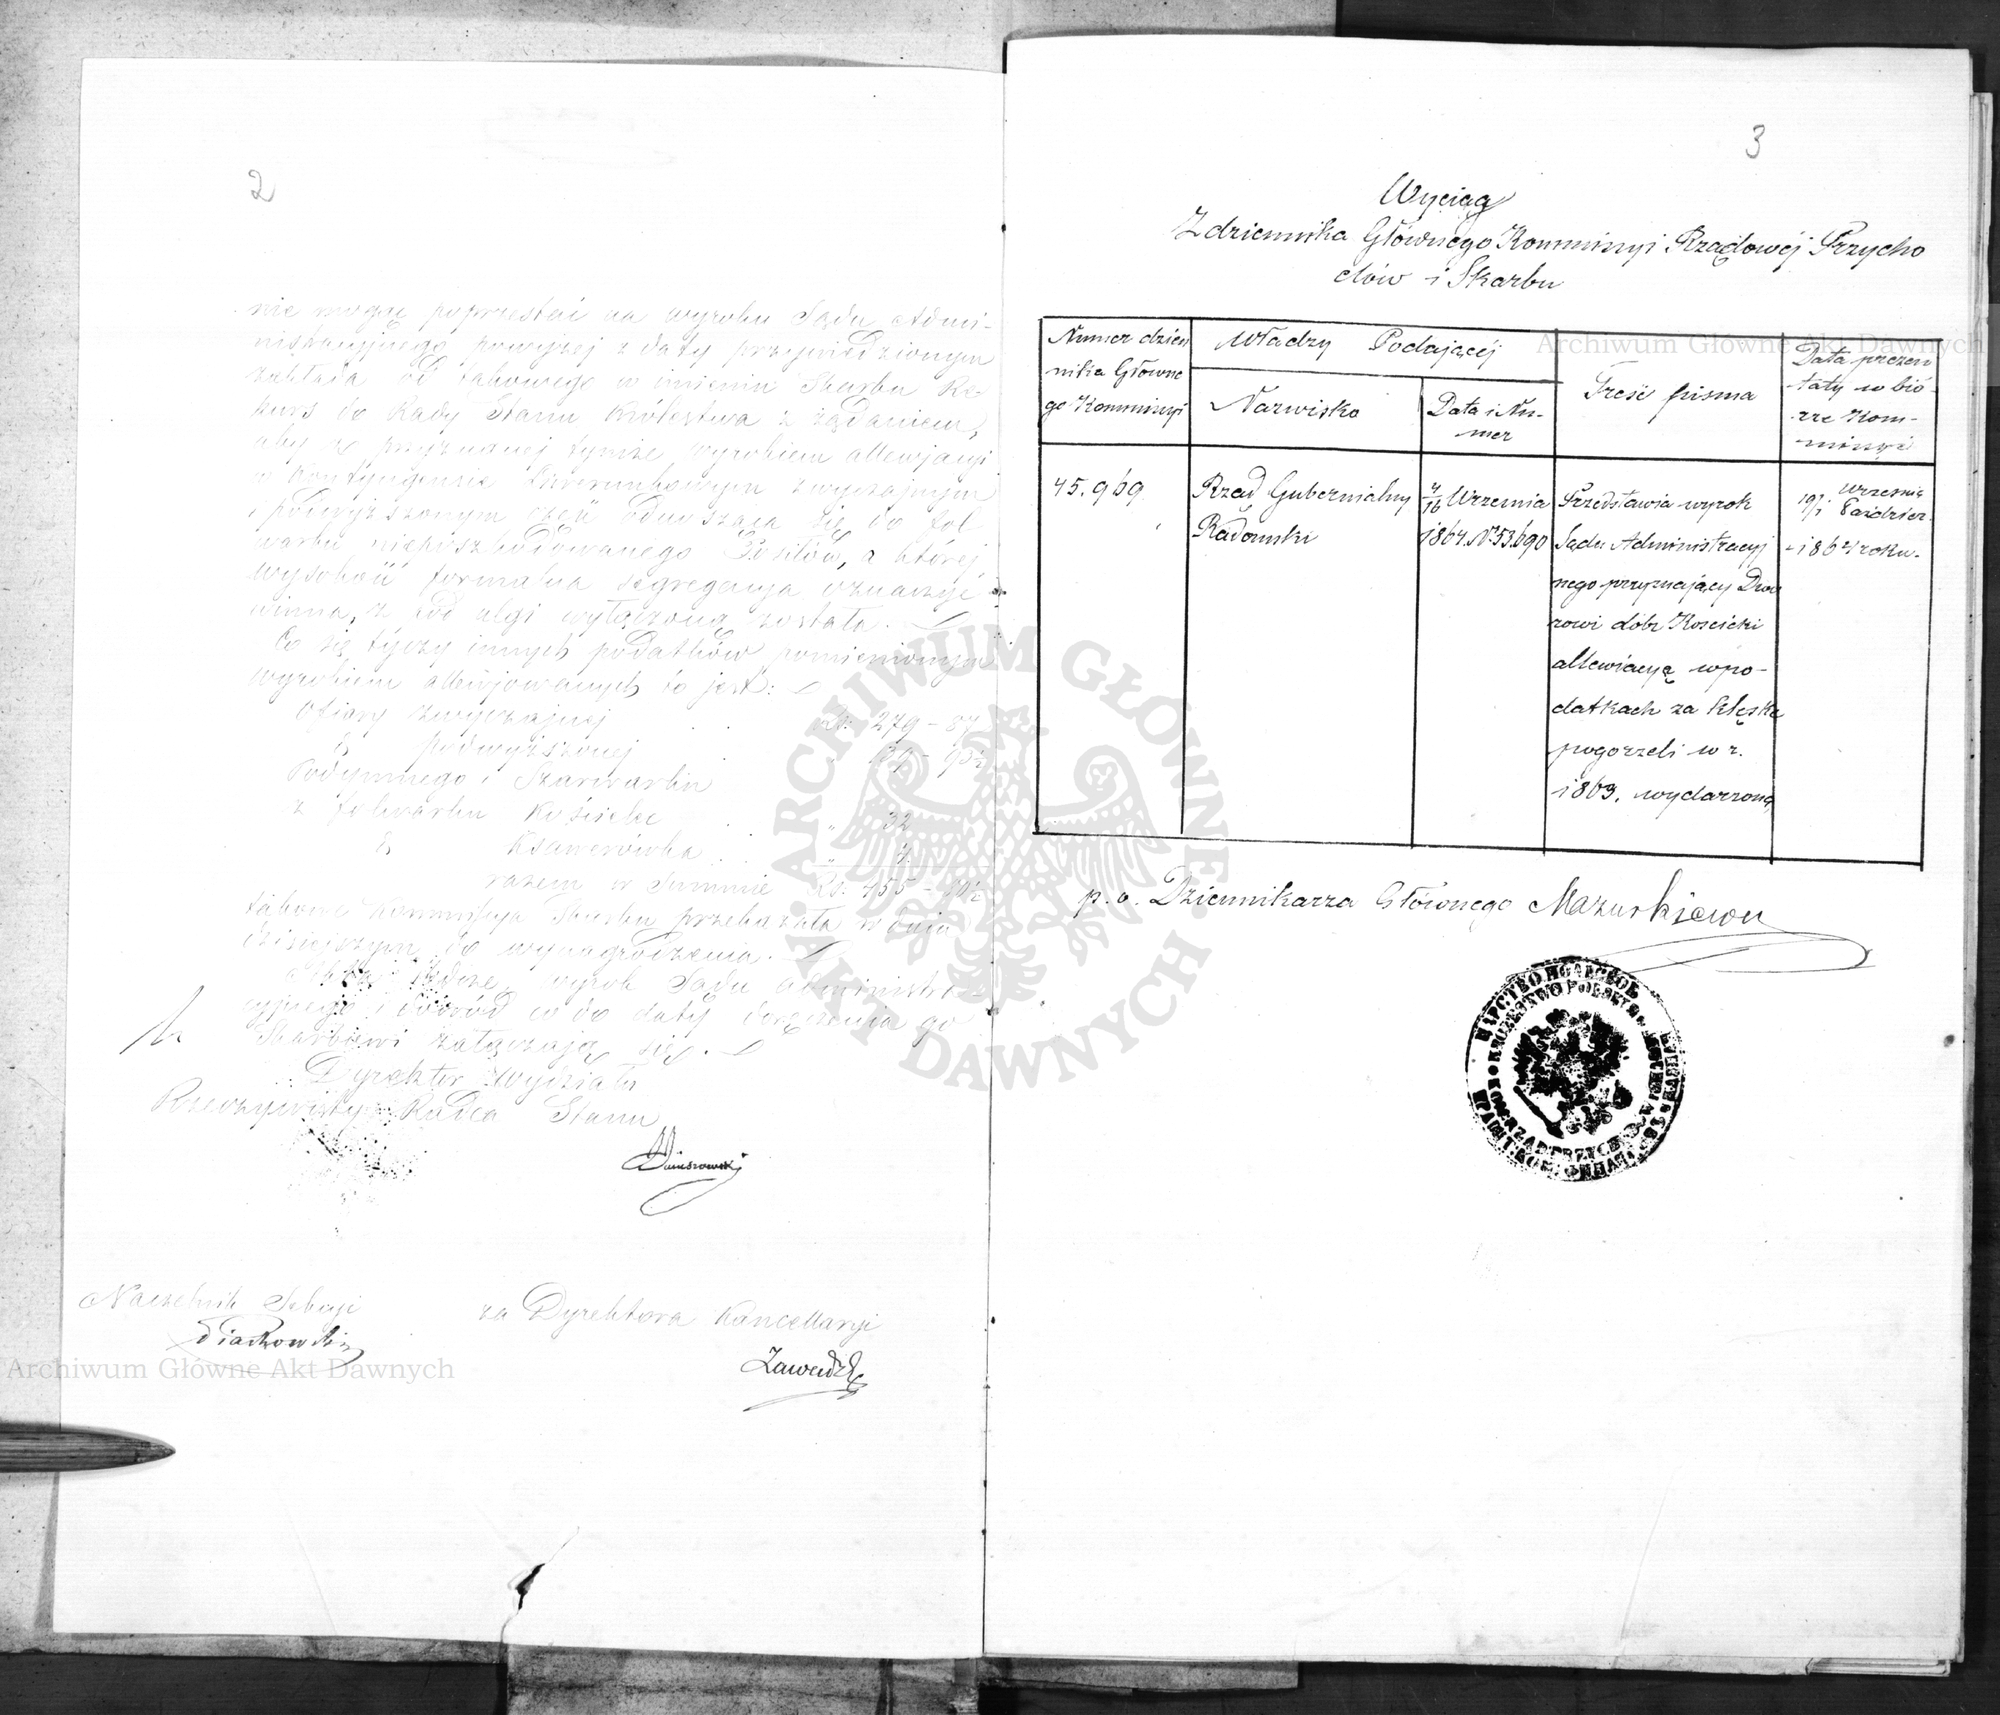 2
nie mogąc poprzestać na wyroku Sądu Admi-
nistracyjnego powyżej z daty przywiedzionym
zakłada od takowego w imieniu Skarbu Re-
kurs do Rady Stanu Królestwa z żądaniem,
aby z przyznanej tymże wyrokiem allewjacyi
w Kontyngensie Liwerunkowym zwyczajnym
i podwyższonym część odnosząca się do fol
warku nieposzkodowanego a której
wysokość formalna segregacya oznaczyć
winna, z pod ulgi wyłączoną została.
Co się tyczy innych podatków pomienionym
wyrokiem allewjowanych to jest:
Ofiary zwyczajnej Rs: 279 - 87
" podwyższonej " 139 - 93½
Podymnego i Szarwarku
z folwarku Kościelec " 32
" Ksawerówka " 4
razem w Summie Rs: 455 - 80½
takowe Kommissya Skarbu przekazała w dniu
dzisiejszym do wynagrodzenia.
wyrok Sądu Administra-
cyjnego i dowód co do daty doręczenia go
Skarbowi załączają się.
Dyrektor Wydziału
Rzeczywisty Radca Stanu
Naczelnik Sekcyi
za Dyrektora Kancellaryi
Piaskowski
Zawadzki
3
Wyciąg
Z dziennika Głównego Kommissyi Rządowéj Przycho
dów i Skarbu
Numer dzien
nika Główne
go Kommissyi
Władzy Podającéj
Nazwisko
Data i Nu-
mer
Treść pisma
Data prezen
taty w bió-
rze Kom-
missyi
45.969
Rząd Gubernialny
Radomski
4/16 Września
1864. N. 53.690
Przedstawia wyrok
Sądu Administracyj
nego przyznający Dwo
rowi dóbr Kościelec
allewiacyą w po-
datkach za klęskę
pogorzeli w r.
1863. wydarzoną
19/1 Września Październ.
1864 roku.
p. o. Dziennikarza Głównego Mazurkiewicz
ЦАРСТВО ПОЛЬСКОЕ
KRÓLESTWO POLSKIE
ARCHIWUM GŁÓWNE AKT DAWNYCH
Archiwum Główne Akt Dawnych
Archiwum Główne Akt Dawnych